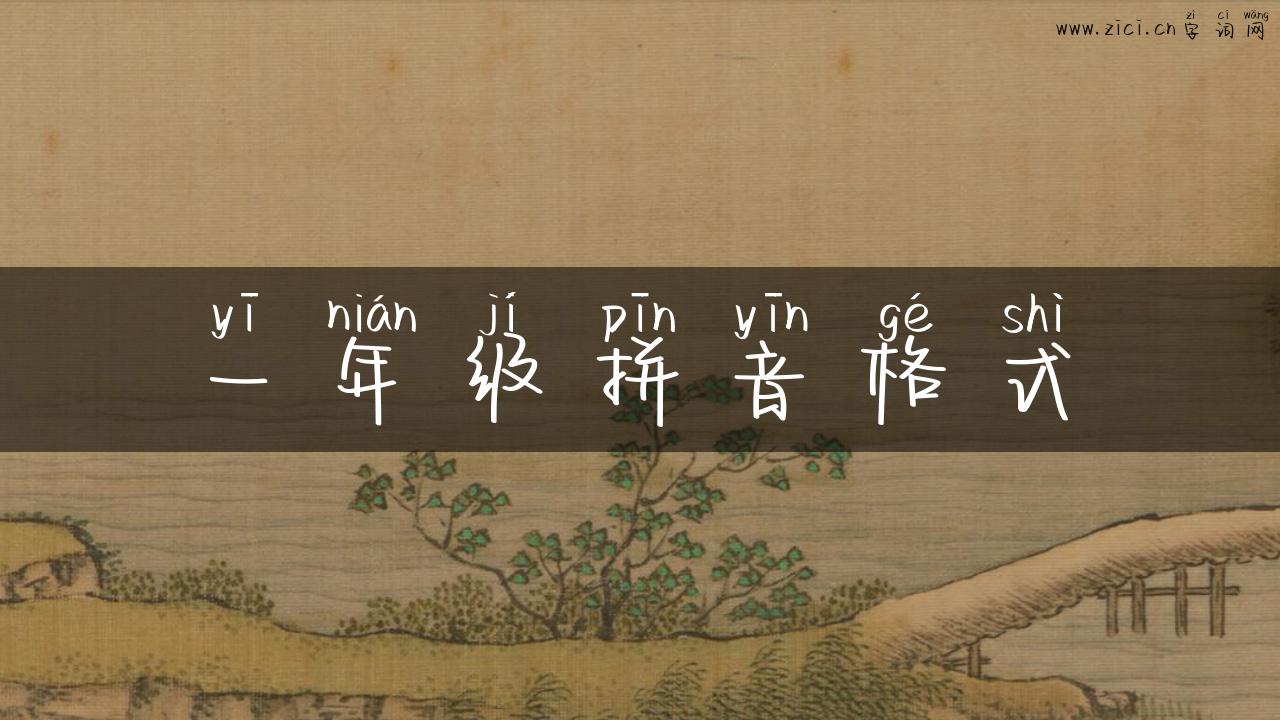 zì cí wǎng
www.zici.cn 字词网
yī nián jí pīn yīn gé shì
一年级拼音格式